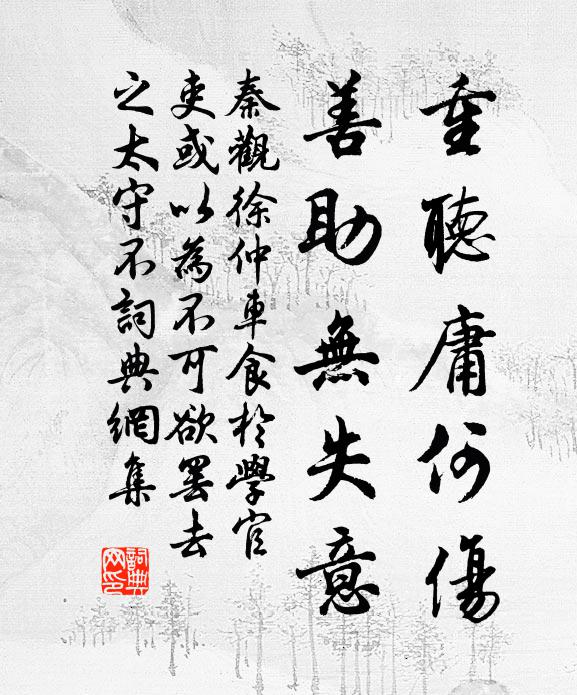 重聽庸何傷
善助無失意
秦觀徐仲車食於學官
吏或以為不可欲罷去
之太守不詞典網集
詞典网印